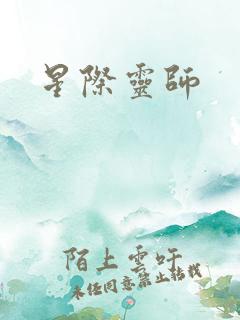 星際靈師
陌上雲吁
未經同意禁止轉載